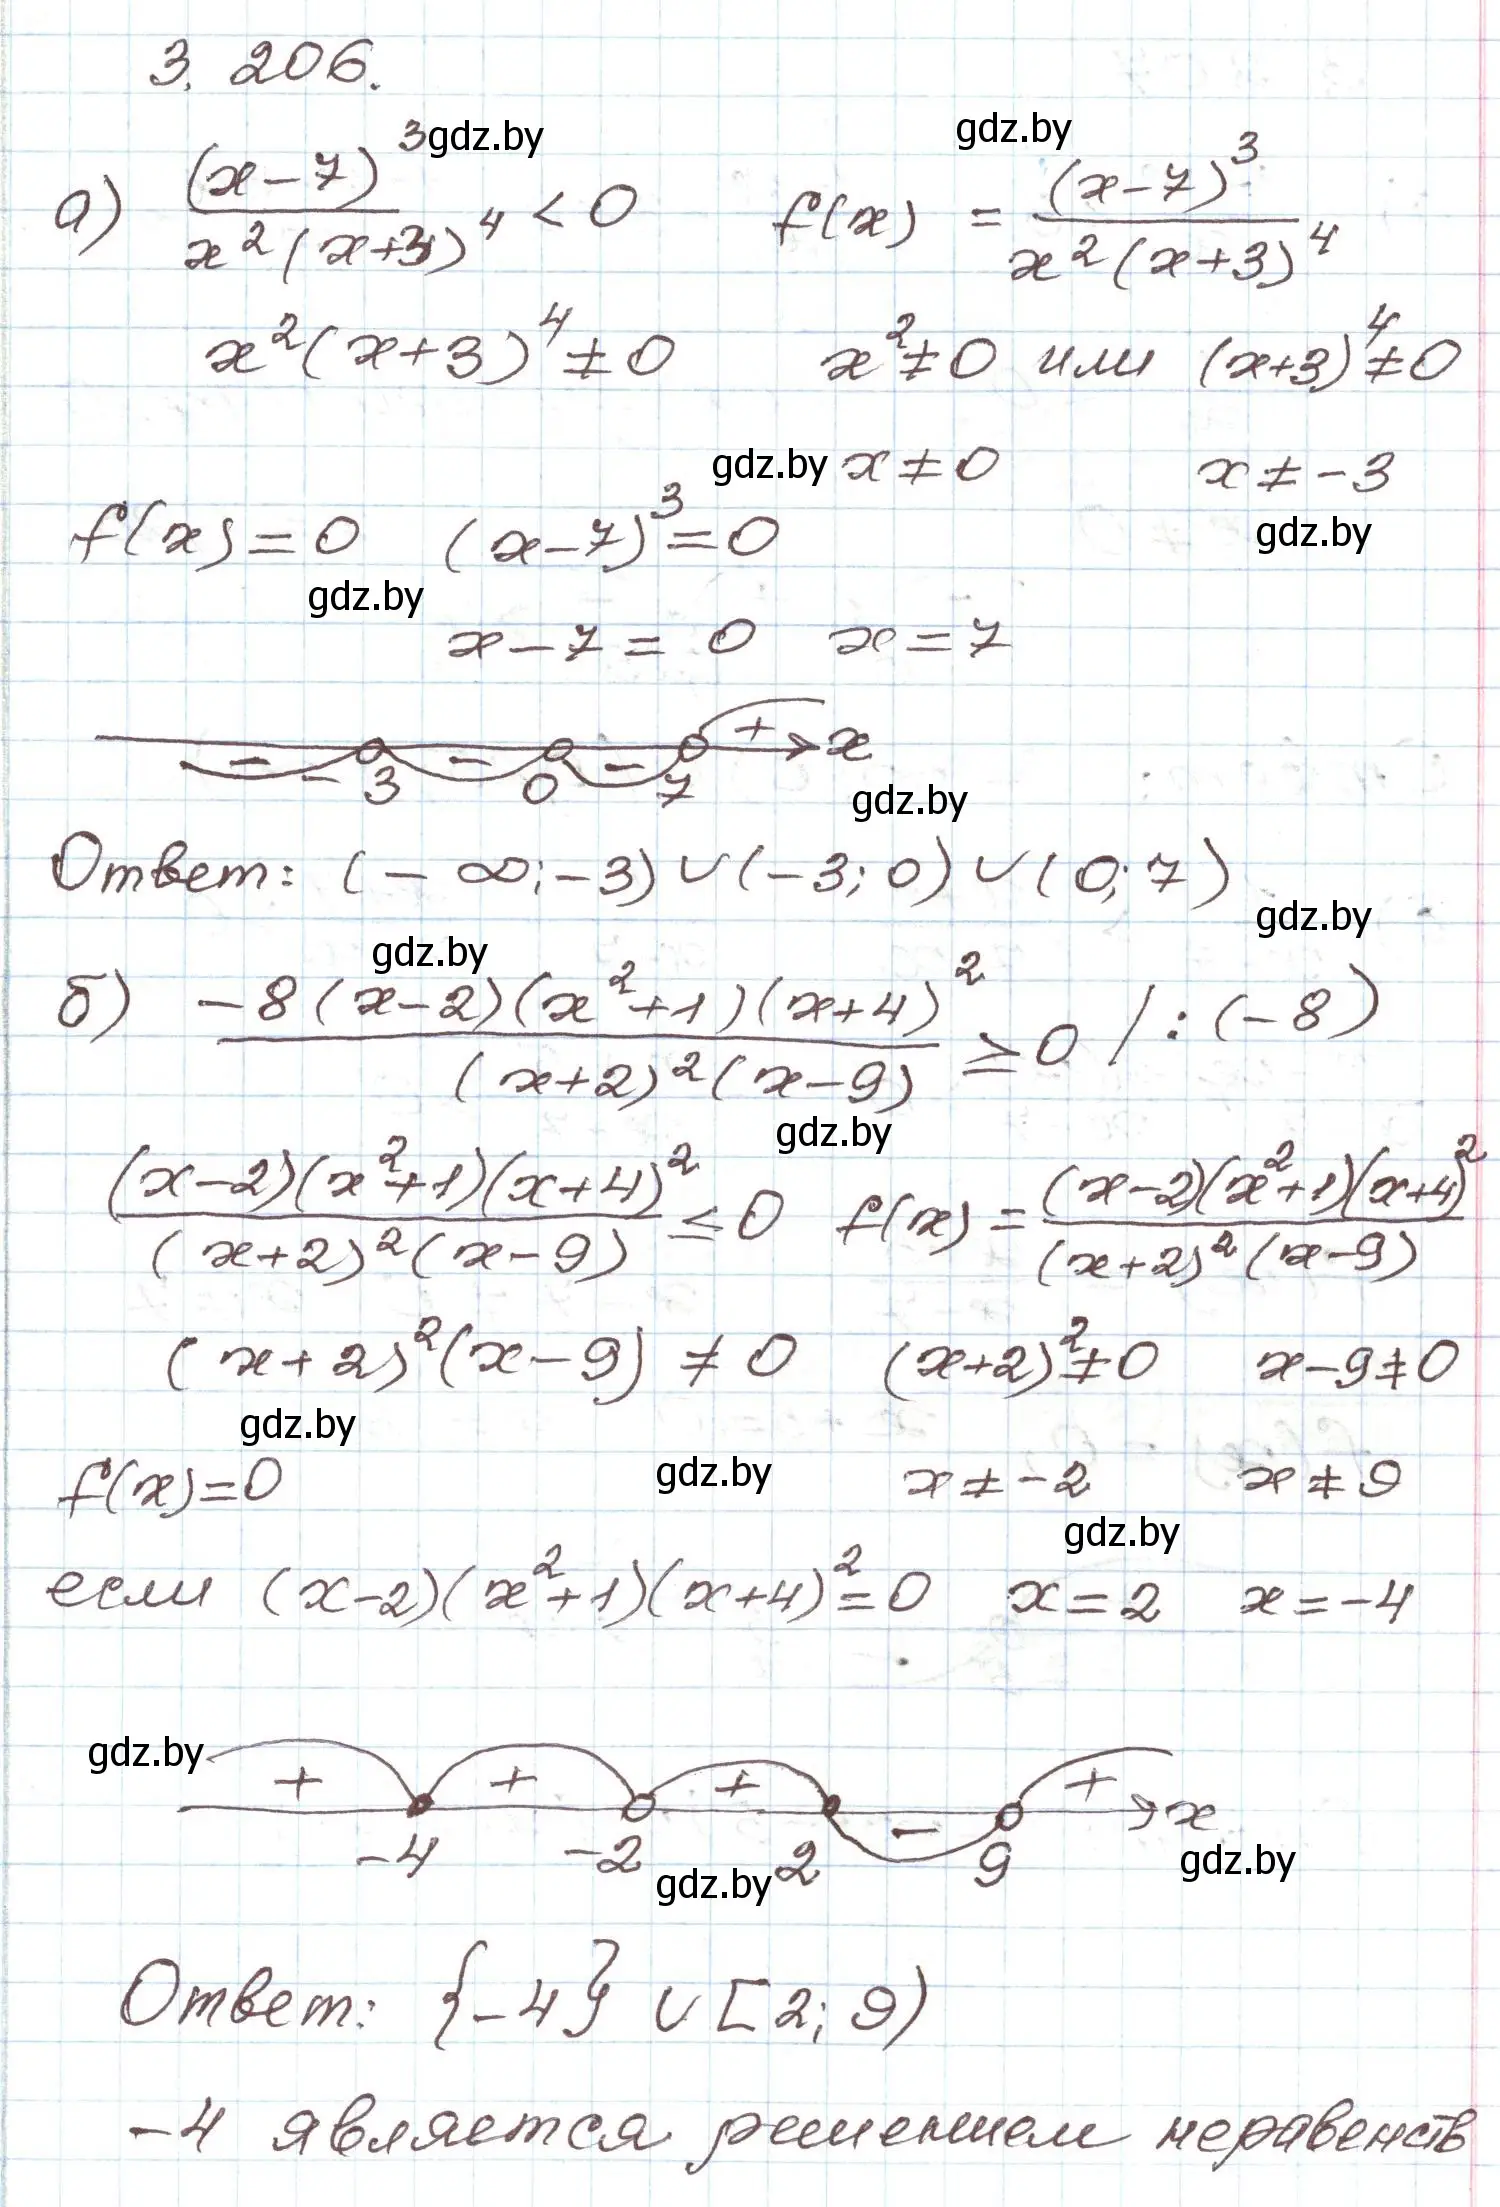 3. 206.
gdz.by gdz.by
а) (x-7)³ / x²(x+3)⁴ < 0 f(x) = (x-7)³ / x²(x+3)⁴
x²(x+3)⁴ ≠ 0 x² ≠ 0 или (x+3)⁴ ≠ 0
gdz.by x ≠ 0 x ≠ -3
f(x) = 0 (x-7)³ = 0 gdz.by
gdz.by
x-7 = 0 x = 7
- - - + x
-3 0 7
gdz.by
Ответ: (-∞; -3) ∪ (-3; 0) ∪ (0; 7)
gdz.by
gdz.by
б) -8(x-2)(x²+1)(x+4)² / (x+2)²(x-9) ≥ 0 / : (-8)
gdz.by
(x-2)(x²+1)(x+4)² / (x+2)²(x-9) ≤ 0 f(x) = (x-2)(x²+1)(x+4)² / (x+2)²(x-9)
(x+2)²(x-9) ≠ 0 (x+2)² ≠ 0 x-9 ≠ 0
gdz.by
f(x) = 0 gdz.by x ≠ -2 x ≠ 9
gdz.by
если (x-2)(x²+1)(x+4)² = 0 x = 2 x = -4
gdz.by
+ + + - + x
-4 -2 2 9
gdz.by gdz.by
Ответ: {-4} ∪ [2; 9)
-4 является решением неравенств